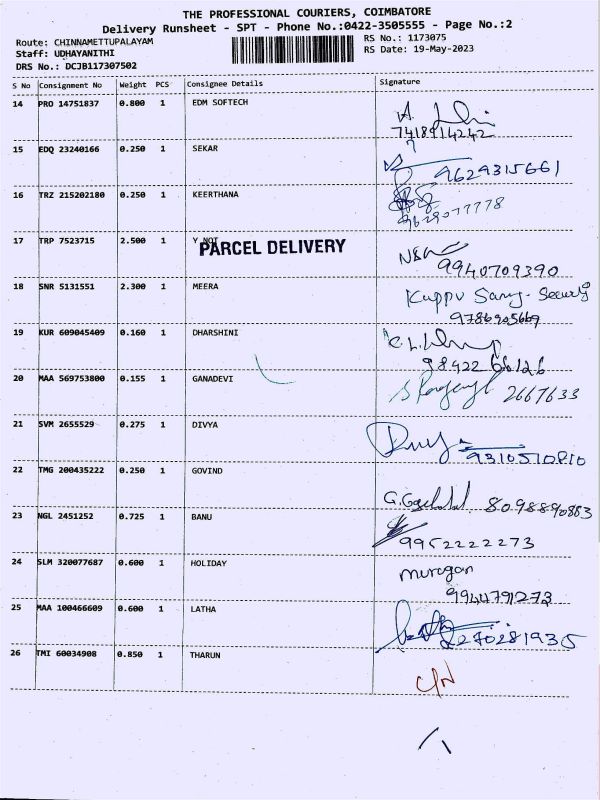 THE PROFESSIONAL COURIERS, COIMBATORE
Delivery Runsheet - SPT - Phone No.:0422-3505555 - Page No.:2
Route: CHINNAMETTUPALAYAM
Staff: UDHAYANITHI
DRS No.: DCJB117307502
RS No.: 1173075
RS Date: 19-May-2023
S No Consignment No Weight PCS Consignee Details Signature
14 PRO 14751837 0.800 1 EDM SOFTECH
7418914242
15 EDQ 23240166 0.250 1 SEKAR
9629315661
16 TRZ 215202180 0.250 1 KEERTHANA
9629077778
17 TRP 7523715 2.500 1 Y NOT
PARCEL DELIVERY
9940709390
18 SNR 5131551 2.300 1 MEERA
Kuppu Samy - Security
9786905669
19 KUR 609045409 0.160 1 DHARSHINI
98422 66126
20 MAA 569753800 0.155 1 GANADEVI
2667633
21 SVM 2655529 0.275 1 DIVYA
9310510810
22 TMG 200435222 0.250 1 GOVIND
8098890883
23 NGL 2451252 0.725 1 BANU
9952222273
24 SLM 320077687 0.600 1 HOLIDAY
murugan
9944791273
25 MAA 100466609 0.600 1 LATHA
2270281935
26 TMI 60034908 0.850 1 THARUN
C/N